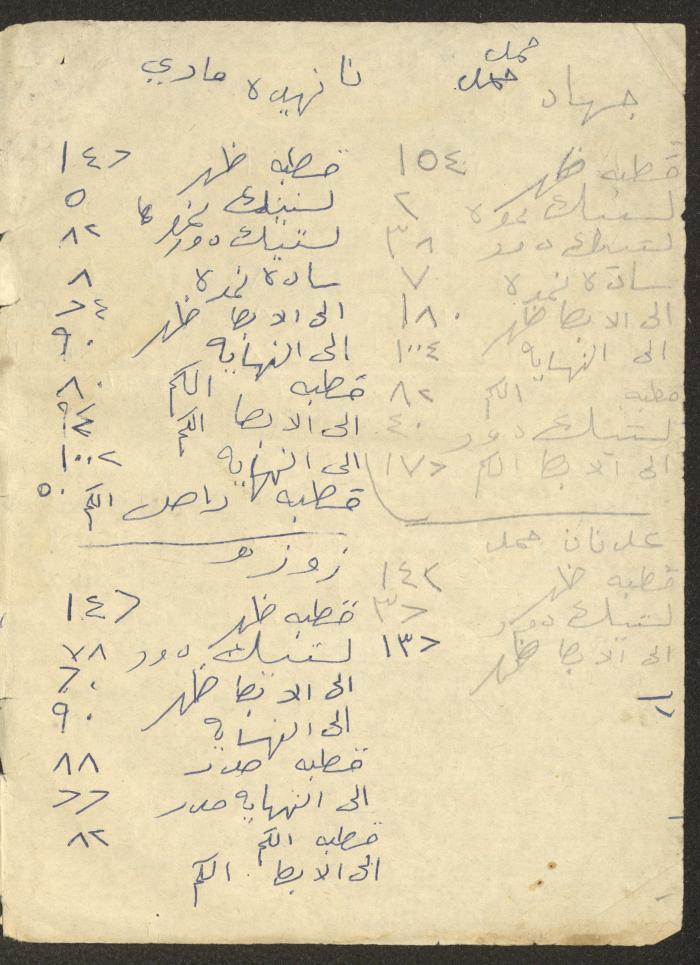 حمل
جهاد حمل
قطبه ظهر ١٥٤
لستيك نمره ٢
لستيك دور ٣٨
سادة نمره ٧
الى الابط ظهر ١٨٠
الى النهايه ١٠٠٤
قطبه الكم ٨٢
لستيك دور ٤٠
الى الابط الكم ١٧٢
عدنان حمل
قطبه ظهر ١٤٢
لستيك دور ٣٢
الى الابط ظهر ١٣٢
نا نهيده مادي
قطبه ظهر ١٤٢
لستيك نمره ٥
لستيك دور ٨٢
ساده نمره ٨
الى الابط ظهر
الى النهايه ٩٠
قطبه الكم ٨٠
الى الابط الكم
الى النهايه ١٠٠٢
قطبه داخل الكم ٥٠
زوزو
قطبه ظهر ١٤٢
لستيك دور ٧٨
الى الابط ظهر
الى النهايه ٩٠
قطبه صدر ٨٨
الى النهايه صدر ٢٢
قطبه الكم ٨٢
الى الابط الكم